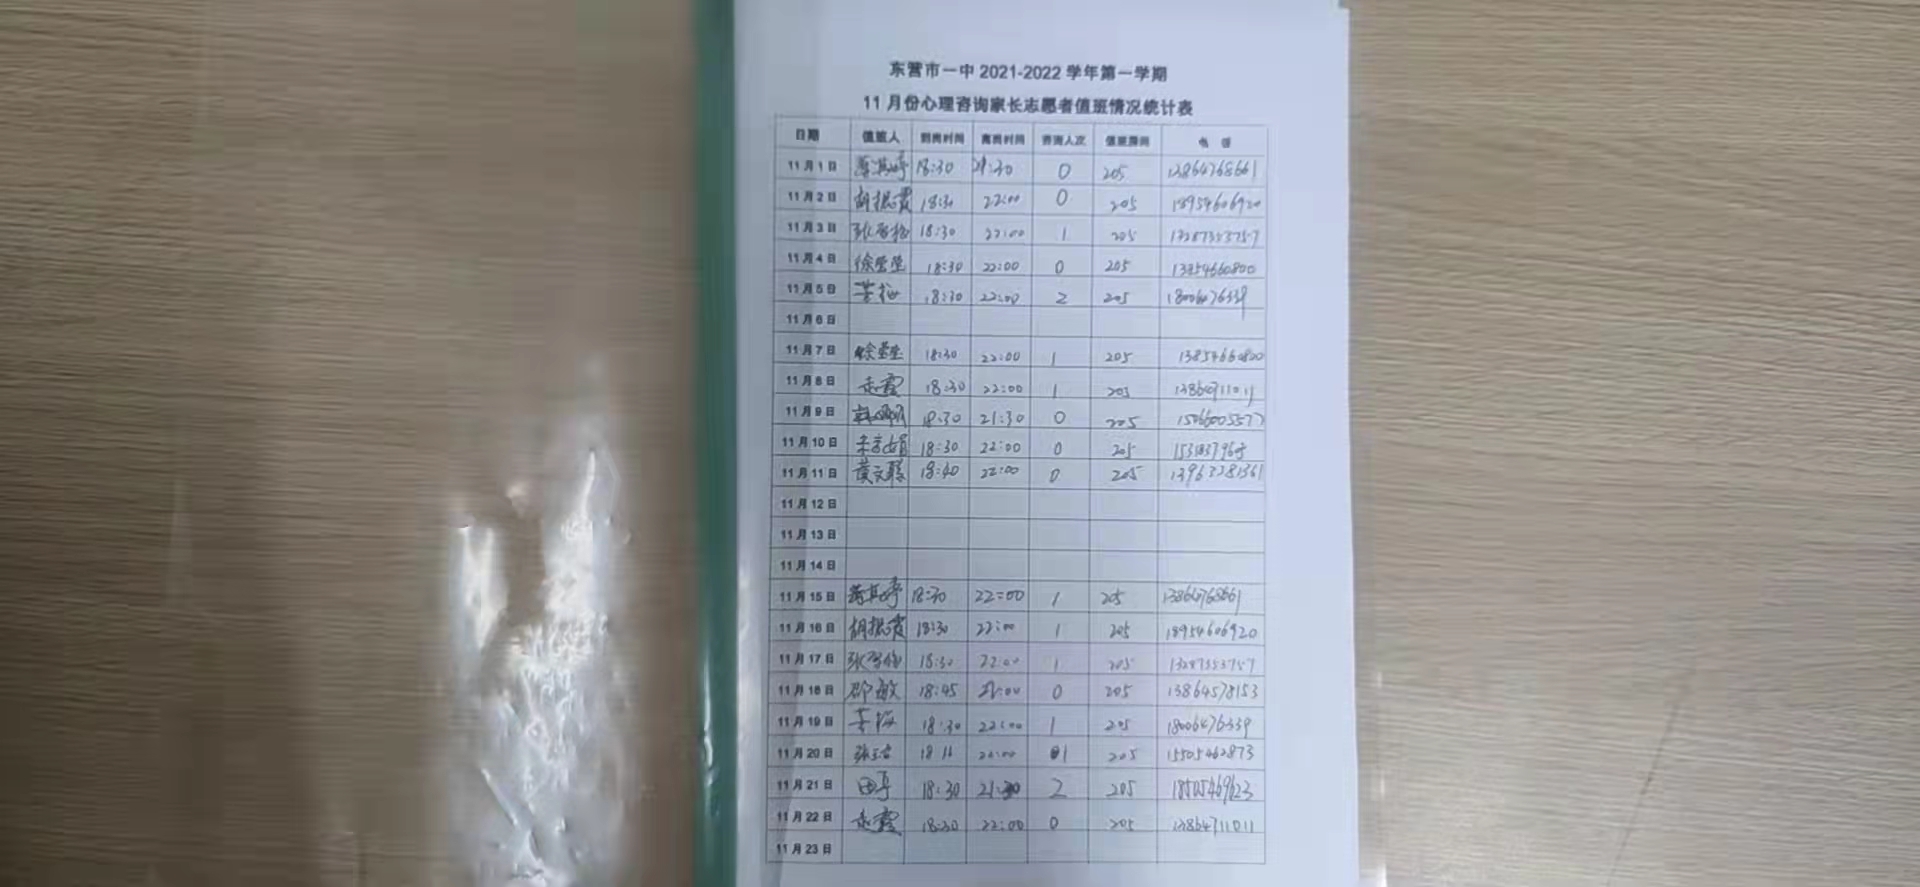 东营市一中 2021-2022 学年第一学期
11 月份心理咨询家长志愿者值班情况统计表
日期 值班人 到岗时间 离岗时间 咨询人次 值班房间 电 话
11月1日 18:30 21:30 0 205 13864768661
11月2日 胡振霞 18:30 22:00 0 205 18954606920
11月3日 18:30 22:00 1 205 13287353757
11月4日 徐莹莹 18:30 22:00 0 205 13854660800
11月5日 18:30 22:00 2 205 18006476339
11月6日
11月7日 徐莹莹 18:30 22:00 1 205 13854660800
11月8日 赵霞 18:30 22:00 1 205 13864711011
11月9日 18:30 21:30 0 205
11月10日 18:30 22:00 0 205
11月11日 18:40 22:00 0 205 13963281361
11月12日
11月13日
11月14日
11月15日 18:30 22:00 1 205 13864768661
11月16日 胡振霞 18:30 22:00 1 205 18954606920
11月17日 18:30 22:00 1 205 13287353757
11月18日 邵敏 18:45 22:00 0 205 13864578153
11月19日 18:30 22:00 1 205 18006476339
11月20日 22:00 1 205 15505462873
11月21日 田亭 18:30 21:30 2 205 18505469623
11月22日 赵霞 18:30 22:00 0 205 13864711011
11月23日